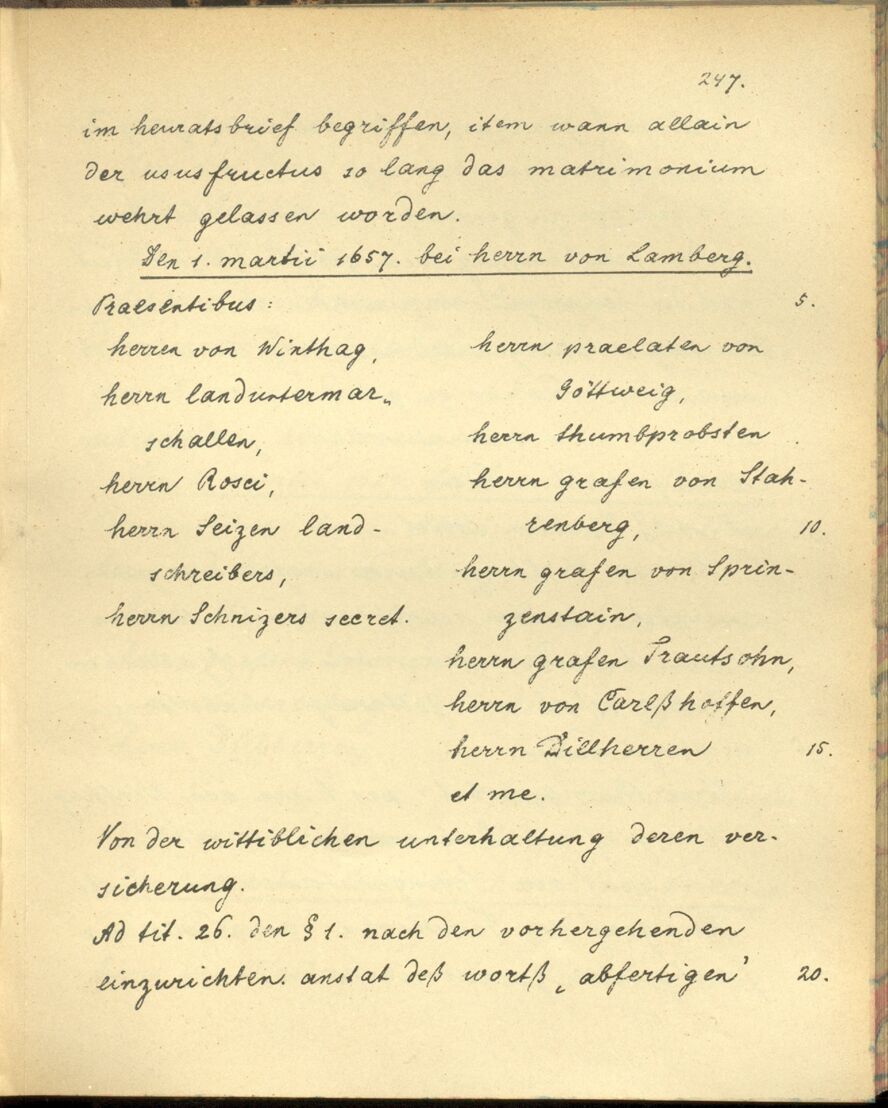 247.
im heuratsbrief begriffen, item wann allain
der ususfructus so lang das matrimonium
wehrt gelassen worden.
Den 1. martii 1657. bei herrn von Lamberg.
Praesentibus: 5.
herren von Winthag,
herrn landuntermar„
schallen,
herrn Rosci,
herrn Seizen land-
schreibers,
herrn Schnizers secret.
herrn praelaten von
Göttweig,
herrn thumbprobsten
herrn grafen von Stah-
renberg, 10.
herrn grafen von Sprin-
zenstain,
herrn grafen Trautsohn,
herrn von Carlßhoffen,
herrn Dillherren 15.
et me.
Von der wittiblichen unterhaltung deren ver-
sicherung.
Ad tit. 26. den § 1. nach den vorhergehenden
einzurichten. anstat deß wortß ‚abfertigen' 20.